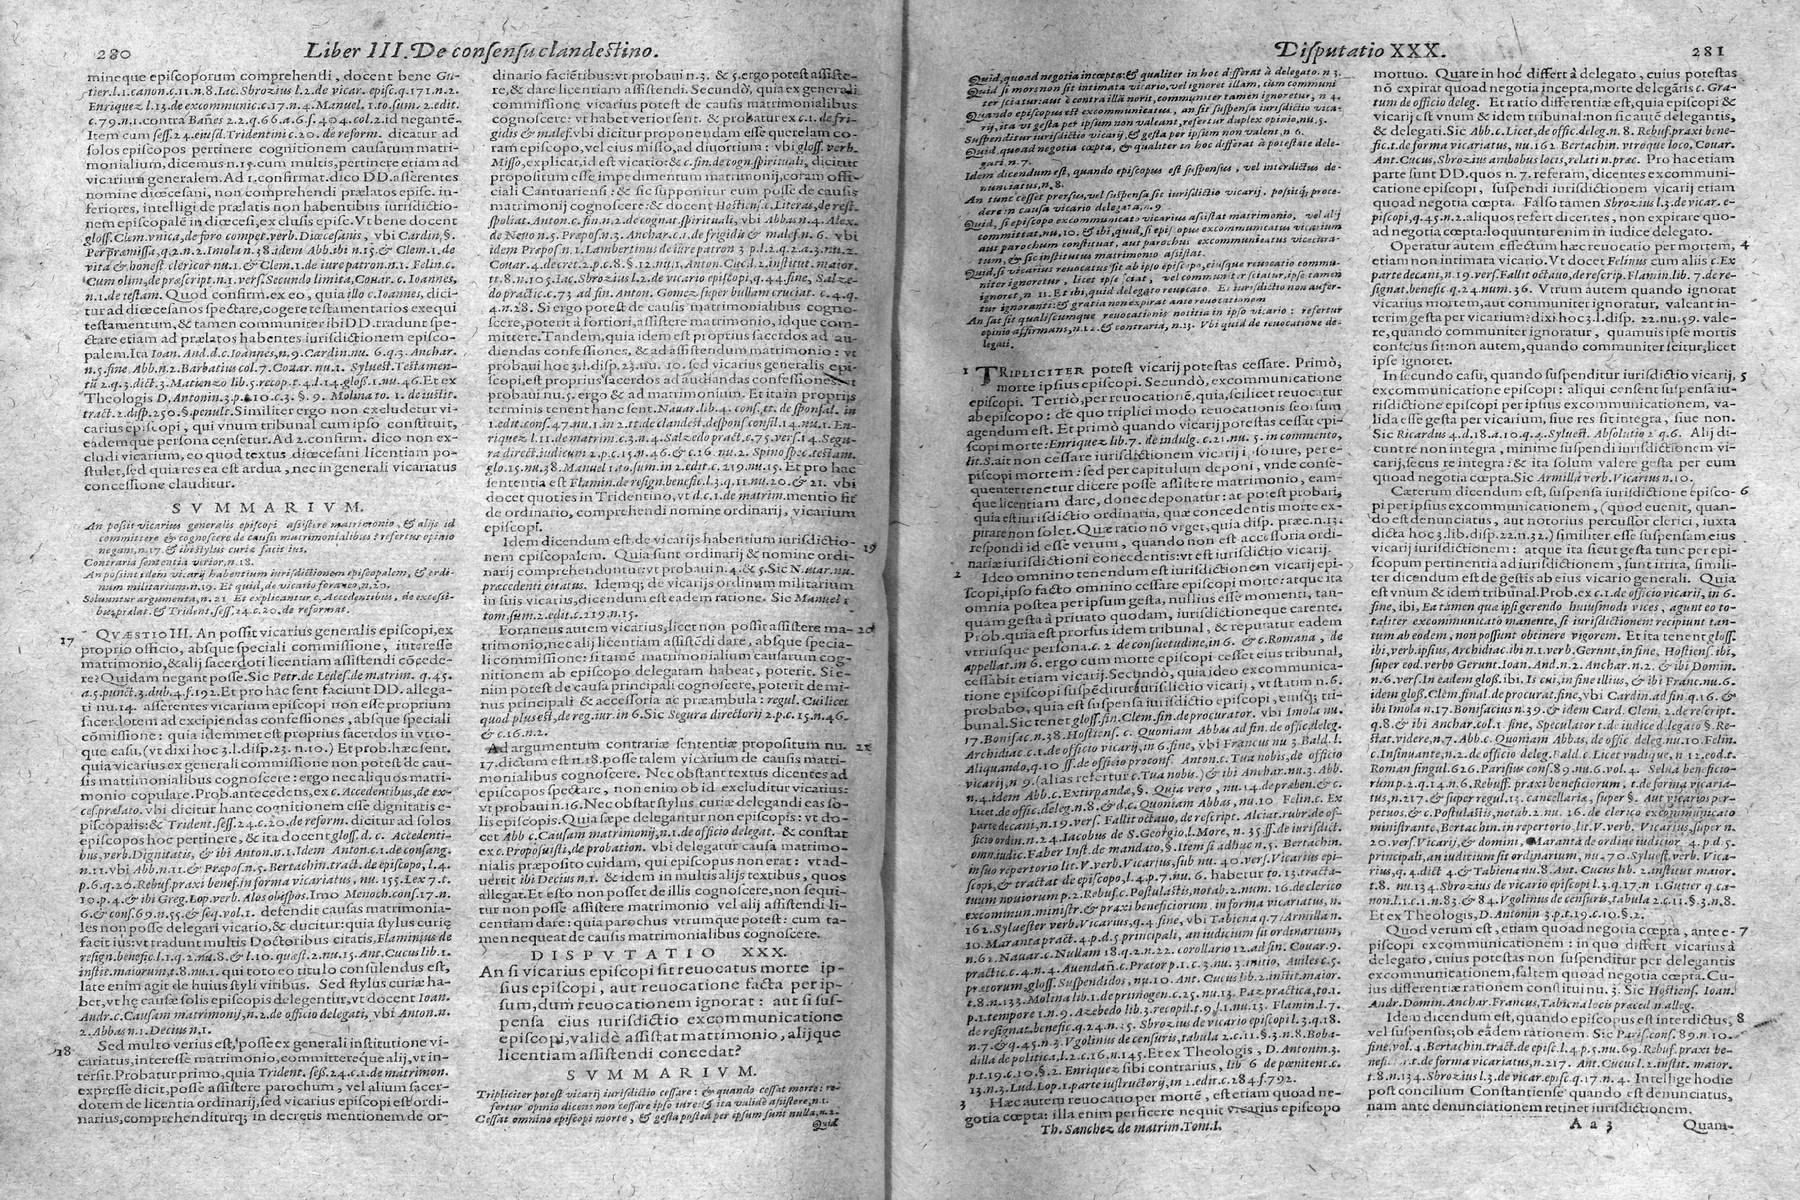 280 Liber III. De consensu clandestino.
mineque episcoporum comprehendi, docent bene Gu-
tier.l.1.canon.c.11.n.8.Iac. Sbrozius l.2. de vicar. episc.q.171.n.2.
Enriquez l.13.de excommunic.c.17.n.4. Manuel. 1.to.sum. 2.edit.
c.79.n.1.contra Bañes 2.2.q.66.a.6.f.404.col.2.id negantē.
Item cum sess.24.eiusd.Tridentini c.20. de reform. dicatur ad
solos episcopos pertinere cognitionem causarum matri-
monialium, dicemus n.15.cum multis, pertinere etiam ad
vicarium generalem. Ad 1.confirmat.dico DD.asserentes
nomine diœcesani, non comprehendi prælatos episc. in-
feriores, intelligi de prælatis non habentibus iurisdictio-
nem episcopalē in diœcesi,exclusis episc. Vt bene docent
gloss.Clem.vnica,de foro compet.verb.Diœcesanis, vbi Cardin.§.
Per præmissa,q.2.n.2.Imola n.38.idem Abb.ibi n.15.& Clem.1. de
vita & honest clericor nu.1.& Clem.1. de iure patron.n.1. Felin.c.
Cum olim,de præscript.n.1.vers.Secundo limita,Couar. c. Ioannes,
n.1.de testam. Quod confirm.ex eo, quia illo c.Ioannes, dici-
tur ad diœcesanos spectare,cogere testamentarios exequi
testamentum, & tamen communiter ibi DD.tradunt spe-
ctare etiam ad prælatos habentes iurisdictionem episco-
palem.Ita Ioan. And.d.c.Ioannes,n.9.Cardin.nu. 6.q.3. Anchar.
n.5.fine. Abb.n.2.Barbatius col.7.Couar.nu.1. Syluest.Testamen-
tū 2.q.3.dict.3. Matienzo lib.5.recop.t.4.l.14.gloss.1.nu.46.Et ex
Theologis D. Antonin.3.p.t.10.c.3. §. 9. Molina to.1. de iustit.
tract.2.disp.250.§.penult.Similiter ergo non excludetur vi-
carius episcopi, qui vnum tribunal cum ipso constituit,
eademque persona censetur.Ad 2.confirm. dico non ex-
cludi vicarium,eo quod textus diœcesani licentiam po-
stulet,sed quia res ea est ardua, nec in generali vicariatus
concessione clauditur.
SVMMARIVM.
An possit vicarius generalis episcopi assistere matrimonio, & alijs id
committere & cognoscere de causis matrimonialibus: refertur opinio
negans,n.17.& ibi stylus curiæ facit ius.
Contraria sententia verior,n.18.
An possint idem vicarij habentium iurisdictionem episcopalem, & ordi-
num militarium,n.19. Et quid, de vicario foraneo,n.20.
Soluuntur argumenta,n.21 Et explicantur c. Accedentibus, de excessi-
bus prælat. & Trident.sess.24.c.20.de reformat.
17 QVÆSTIO III. An possit vicarius generalis episcopi,ex
proprio officio, absque speciali commissione, interesse
matrimonio,& alij sacerdoti licentiam assistendi cōcede-
re? Quidam negant posse.Sic Petr.de Ledes.de matrim. q.45.
a.5.punct.3.dub.4.f.192.Et pro hac sent faciunt DD. allega-
ti nu.14. asserentes vicarium episcopi non esse proprium
sacerdotem ad excipiendas confessiones, absque speciali
cōmissione: quia idemmet est proprius sacerdos in vtro-
que casu,(vt dixi hoc 3.l.disp.23. n.10.) Et prob.hæc sent.
quia vicarius ex generali commissione non potest de cau-
sis matrimonialibus cognoscere: ergo nec aliquos matri-
monio copulare. Prob.antecedens,ex c. Accedentibus,de ex-
ces.prælato. vbi dicitur hanc cognitionem esse dignitatis e-
piscopalis:& Trident.sess.24.c.20.de reform. dicitur ad solos
episcopos hoc pertinere, & ita docent gloss. d. c. Accedenti-
bus,verb.Dignitatis, & ibi Anton.n.1.Idem Anton.c.1.de consang.
n.11.vbi Abb.n.11.& Præpos.n.5. Bertachin.tract.de episcopo,l.4.
p.6.q.20.Rebuf.praxi benef.in forma vicariatus, nu.155.Lex 7.t.
10.p.4.& ibi Greg.Lop.verb. Alos obispos.Imo Menoch.cons.17.n.
6.& cons.69.n.55.& seq.vol.1. defendit causas matrimonia-
les non posse delegari vicario,& ducitur:quia stylus curiæ
facit ius:vt tradunt multis Doctoribus citatis, Flaminius de
resign.benefic.l.1.q.2.nu.8.& l.10.quæst.2.nu.15.Ant.Cucus lib.1.
instit.maiorum,t.8.nu.1. qui toto eo titulo consulendus est,
late enim agit de huius styli viribus. Sed stylus curiæ ha-
bet,vt hę causæ solis episcopis delegentur,vt docent Ioan.
Andr.c.Causam matrimonij,n.2.de officio delegati, vbi Anton.n.
2.Abbas n.1.Decius n.1.
18 Sed multo verius est, posse ex generali institutione vi-
cariatus,interesse matrimonio,committereque alij,vt in-
tersit.Probatur primo,quia Trident. sess.24.c.1.de matrimon.
expresse dicit,posse assistere parochum, vel alium sacer-
dotem de licentia ordinarij,sed vicarius episcopi est ordi-
narius,comprehenditurq; in decretis mentionem de or-
dinario facientibus:vt probaui n.3. & 5.ergo potest assiste-
re,& dare licentiam assistendi. Secundò, quia ex generali
commissione vicarius potest de causis matrimonialibus
cognoscere: vt habet verior sent. & probatur ex c.1.de fri-
gidis & malef.vbi dicitur proponendam esse querelam co-
ram episcopo,vel eius misso,ad diuortium : vbi gloss. verb.
Misso,explicat,id est vicario:& c.fin.de cogn.spirituali, dicitur
propositum esse impedimentum matrimonij,coram offi-
ciali Cantuariensi:& sic supponitur eum posse de causis
matrimonij cognoscere:& docent Hostiens.c.Literas,de rest.
spoliat.Anton.c.fin.n.2.de cognat.spirituali, vbi Abbas n.4. Alex.
de Neuo n.5. Prepos.n.3. Anchar.c.1.de frigidis & malef.n.6. vbi
idem Prepos n.1.Lambertinus de iure patron 3 p.l.2.q.2.a.3.nu.2.
Couar.4.decret.2.p.c.8.§.12.nu.1. Anton.Cuc.l.2.institut.maior.
tt.8.n.105.Iac.Sbrozius l.2.de vicario episcopi,q.44.fine, Salze-
do practic.c.73 ad fin. Anton. Gomez super bullam cruciat. c.4.q.
4.n.28. Si ergo potest de causis matrimonialibus cogno-
scere,poterit à fortiori,assistere matrimonio, idque com-
mittere.Tandem,quia idem est proprius sacerdos ad au-
diendas confessiones, & ad assistendum matrimonio : vt
probaui hoc 3.l.disp.23. nu. 10. sed vicarius generalis epi-
scopi,est proprius sacerdos ad audiandas confessiones,vt
probaui nu.5. ergo & ad matrimonium. Et ita in proprijs
terminis tenent hanc sent. Nauar.lib.4. cons.tt. de sponsal. in
1.edit.cons.47.nu.1.in 2.tt.de clandest.despons consil.14.nu.1. En-
riquez l.11.de matrim.c.3.n.4.Salzedo pract.c.75.vers.14.Segu-
ra direct.iudicum 2.p.c.15.n.46.& c.16 nu.2. Spino spec.testam.
glo.15.nu.38.Manuel 1.to.sum.in 2.edit.c.219.nu.15. Et pro hac
sententia est Flamin.de resign.benefic.l.3.q.11.nu.20.& 21. vbi
docet quoties in Tridentino,vt d.c.1.de matrim.mentio fit
de ordinario, comprehendi nomine ordinarij, vicarium
episcopi.
Idem dicendum est, de vicarijs habentium iurisdictio- 19
nem episcopalem. Quia sunt ordinarij & nomine ordi-
narij comprehenduntur:vt probaui n.4.& 5.Sic Nauar.nu.
præcedenti citatus. Idemq; de vicarijs ordinum militarium
in suis vicarijs,dicendum est eadem ratione. Sic Manuel 1
tom.sum.2.edit.c.219.n.15.
Foraneus autem vicarius,licet non possit assistere ma- 20
trimonio,nec alij licentiam assistēdi dare, absque specia-
li commissione: si tamē matrimonialium causarum cog-
nitionem ab episcopo delegatam habeat, poterit. Si e-
nim potest de causa principali cognoscere, poterit de mi-
nus principali & accessoria ac præambula : regul. Cui licet
quod plus est, de reg.iur.in 6.Sic Segura directorij 2.p.c.15.n.46.
& c.16.n.2.
Ad argumentum contrariæ sententiæ propositum nu. 21
17.dictum est n.18.posse talem vicarium de causis matri-
monialibus cognoscere. Nec obstant textus dicentes ad
episcopos spectare, non enim ob id excluditur vicarius:
vt probaui n.16.Nec obstat stylus curiæ delegandi eas so-
lis episcopis.Quia sæpe delegantur non episcopis: vt do-
cet Abb c.Causam matrimonij,n.1.de officio delegat. & constat
ex c. Proposuisti,de probation. vbi delegatur causa matrimo-
nialis præposito cuidam, qui episcopus non erat: vt ad-
uertit ibi Decius n.1. & idem in multis alijs textibus, quos
allegat. Et esto non posset de illis cognoscere,non sequi-
tur non posse assistere matrimonio vel alij assistendi li-
centiam dare: quia parochus vtrumque potest: cum ta-
men nequeat de causis matrimonialibus cognoscere.
DISPVTATIO XXX.
An si vicarius episcopi sit reuocatus morte ip-
sius episcopi, aut reuocatione facta per ip-
sum,dum reuocationem ignorat: aut si sus-
pensa eius iurisdictio excommunicatione
episcopi,validè assistat matrimonio, alijque
licentiam assistendi concedat?
SVMMARIVM.
Tripliciter potest vicarij iurisdictio cessare: & quando cessat morte: re-
fertur opinio dicens non cessare ipso iure:& ita validè assistere,n.1.
Cessat omnino episcopi morte, & gesta postea per ipsum sunt nulla,n.2.
Quid
Disputatio XXX. 281
Quid, quoad negotia incœpta:& qualiter in hoc differat à delegato. n 3.
Quid si mors non sit intimata vicario,vel ignoret illam, cum communi
ter sciatur:aut è contra illā norit, communiter tamen ignoretur, n 4.
Quando episcopus est excommunicatus, an sit suspensa iurisdictio vica-
rij,ita vt gesta per ipsum non valeant,refertur duplex opinio,nu.5.
Suspenditur iurisdictio vicarij,& gesta per ipsum non valent,n 6.
Quid,quoad negotia cœpta, & qualiter in hoc differat à potestate dele-
gari,n.7.
Idem dicendum est, quando episcopus est suspensus, vel interdictus de-
nunciatus,n.8.
An tunc cesset prorsus,vel suspensa sit iurisdictio vicarij, possitq; proce-
dere in causa vicario delegata,n.9
Quid, si episcopo excommunicato vicarius assistat matrimonio, vel alij
committat,nu.10. & ibi,quid,si episcopus excommunicatus vicarium
aut parochum constituat, aut parochus excommunicatus vicecura-
tum, & sic institutus matrimonio assistat.
Quid,si vicarius reuocatus sit ab ipso episcopo,eiusque reuocatio commu-
niter ignoretur, licet ipse sciat, vel communiter sciatur,ipse tamen
ignoret,n 11. Et ibi,quid delegato reuocato. Et iurisdictio non aufer-
tur ignoranti:& gratia non expirat ante reuocationem
An sat sit qualiscumque reuocationis notitia in ipso vicario: refertur
opinio affirmans,n.12. & contraria, n.13. Vbi quid de reuocatione de-
legati.
1 TRIPLICITER potest vicarij potestas cessare. Primò,
morte ipsius episcopi. Secundò, excommunicatione
episcopi. Tertiò,per reuocationē,quia,scilicet reuocatur
ab episcopo: de quo triplici modo reuocationis seorsum
agendum est. Et primò quando vicarij potestas cessat epi-
scopi morte:Enriquez lib.7. de indulg. c.21.nu. 5. in commento,
lit.S.ait non cessare iurisdictionem vicarij ipso iure, per e-
piscopi mortem : sed per capitulum deponi, vnde conse-
quenter tenetur dicere posse assistere matrimonio, eam-
que licentiam dare, donec deponatur: at potest probari,
quia est iurisdictio ordinaria, quæ concedentis morte ex-
pirare non solet.Quæ ratio nō vrget,quia disp. præc.n.13.
respondi id esse verum, quando non est accessoria ordi-
nariæ iurisdictioni concedentis:vt est iurisdictio vicarij.
2 Ideo omnino tenendum est iurisdictionem vicarij epi-
scopi,ipso facto omnino cessare episcopi morte:atque ita
omnia postea per ipsum gesta, nullius esse momenti, tan-
quam gesta à priuato quodam, iurisdictioneque carente.
Prob.quia est prorsus idem tribunal, & reputatur eadem
vtriusque persona.c.2. de consuetudine,in 6. & c.Romana, de
appellat.in 6. ergo cum morte episcopi cesset eius tribunal,
cessabit etiam vicarij.Secundò,quia ideo excommunica-
tione episcopi suspēditur iurisdictio vicarij, vt statim n.6.
probabo, quia est suspensa iurisdictio episcopi, eiusq; tri-
bunal.Sic tenet gloss.fin.Clem.fin.de procurator. vbi Imola nu.
17.Bonifac.n.38.Hostiens. c. Quoniam Abbas ad fin.de offic.deleg.
Archidiac c.1.de officio vicarij,in 6.fine, vbi Francus nu 3.Bald.l.
Aliquando,q.10 ff.de officio proconf. Anton.c.Tua nobis,de officio
vicarij,n 9.(alias refertur c.Tua nobis.)& ibi Anchar.nu.3. Abb.
n.4.idem Abb.c.Extirpandæ,§. Quia vero, nu.14.de præben.& c.
Licet,de offic.deleg.n.8.& d.c. Quoniam Abbas,nu.10 Felin.c. Ex
parte decani,n.19.vers. Fallit octauo,de rescript. Alciat.rubr.de of-
ficio ordin.n.24.Iacobus de S.Georgio,l.More, n.35.ff.de iurisdict.
omn.iudic.Faber Inst.de mandato,§.Item si adhuc n.5. Bertachin.
in suo repertorio lit.V.verb.Vicarius,sub nu. 40.vers.Vicarius epi-
scopi,& tractat de episcopo,l.4.p.7.nu.6. habetur to.13.tracta-
tuum nouiorum p.2.Rebuf.c.Postulastis,notab.2.num.16.de clerico
excommun.ministr.& praxi beneficiorum, in forma vicariatus, n.
162.Syluester verb.Vicarius,q.4.fine, vbi Tabiena q.7.Armilla n.
10. Maranta pract.4.p.d.5 principali, an iudicium sit ordinarium,
n.62 Nauar.c.Nullam 18.q.2.n.22.corollario 12.ad fin. Couar.9.
practic.c.4.n.4. Auendañ.c.Prætor p.1.c.3.nu.3.initio, Auiles c.5.
prætor,gloss.Suspendidos,nu.10. Ant.Cucus lib.2.instit.maior.
t.8.n.133.Molina lib.1.de primogen.c.25.nu.13. Paz practica,to.1.
p.1.tempore 1.n.9. Azebedo lib.3.recopil.t.9.l.1.nu.13. Flamin.l.7.
de resignat.benefic.q.24.n.35. Sbrozius de vicario episcopi l.3.q.18.
n.7.& q.45.n.3.Vgolinus de censuris,tabula 2.c.11.§.3.n.8. Boba-
dilla de politica,l.2.c.16.n.145.Et ex Theologis, D. Antonin.3.
p.t.19.c.10.§.2. Enriquez sibi contrarius, lib 6.de pœnitent.c.
13.n.3.Lud.Lop.1.parte instructorij,in 2.edit.c.284.f.792.
3 Hæc autem reuocatio per mortē, est etiam quoad ne-
gotia cœpta: illa enim perficere nequit vicarius episcopo
Th. Sanchez de matrim.Tom.I.
mortuo. Quare in hoc differt à delegato, cuius potestas
nō expirat quoad negotia incepta,morte delegātis c. Gra-
tum de officio deleg. Et ratio differentiæ est,quia episcopi &
vicarij est vnum & idem tribunal:non sic autē delegantis,
& delegati.Sic Abb.c.Licet,de offic.deleg.n.8. Rebuf.praxi bene-
fic.t.de forma vicariatus, nu.162 Bertachin. vtroque loco, Couar.
Ant.Cucus,Sbrozius ambobus locis,relati n.præc. Pro hac etiam
parte sunt DD.quos n.7.referam,dicentes excommuni-
catione episcopi, suspendi iurisdictionem vicarij etiam
quoad negotia cœpta. Falso tamen Sbrozius l.3.de vicar. e-
piscopi,q.45.n.2.aliquos refert dicentes, non expirare quo-
ad negotia cœpta:loquuntur enim in iudice delegato.
Operatur autem effectum hæc reuocatio per mortem, 4
etiam non intimata vicario. Vt docet Felinus cum alijs c.Ex
parte decani,n.19.vers.Fallit octauo,de rescrip.Flamin.lib.7.de re-
signat.benefic q.24.num.36. Vtrum autem quando ignorat
vicarius mortem,aut communiter ignoratur, valeant in-
terim gesta per vicarium?dixi hoc 3.l.disp. 22.nu.59. vale-
re,quando communiter ignoratur, quamuis ipse mortis
conscius sit:non autem,quando communiter scitur,licet
ipse ignoret.
In secundo casu, quando suspenditur iurisdictio vicarij, 5
excommunicatione episcopi: aliqui censent suspensa iu-
risdictione episcopi per ipsius excommunicationem, va-
lida esse gesta per vicarium, siue res sit integra, siue non.
Sic Ricardus 4.d.18.a.10.q.4. Syluest. Absolutio 2 q.6. Alij di-
cunt re non integra, minime suspendi iurisdictionem vi-
carij,secus re integra:& ita solum valere gesta per eum
quoad negotia cœpta.Sic Armilla verb.Vicarius n.10.
Cæterum dicendum est, suspensa iurisdictione episco- 6
pi per ipsius excommunicationem, (quod euenit, quan-
do est denunciatus, aut notorius percussor clerici, iuxta
dicta hoc 3.lib.disp.22.n.32.) similiter esse suspensam eius
vicarij iurisdictionem: atque ita sicut gesta tunc per epi-
scopum pertinentia ad iurisdictionem, sunt irrita, simili-
ter dicendum est de gestis ab eius vicario generali. Quia
est vnum & idem tribunal.Prob.ex c.1.de officio vicarij, in 6.
fine, ibi, Ea tamen quæ ipsi gerendo huiusmodi vices, agunt eo to-
taliter excommunicato manente, si iurisdictionem recipiunt tan-
tum ab eodem, non possunt obtinere vigorem. Et ita tenent gloss.
ibi,verb.ipsius, Archidiac.ibi n.1.verb.Gerunt, in fine, Hostiens. ibi,
super eod.verbo Gerunt. Ioan.And.n.2. Anchar.n.2. & ibi Domin.
n.6.vers.In eadem gloss.ibi. Is cui, in fine illius, & ibi Franc.nu.6.
idem gloss.Clem.final.de procurat.fine,vbi Cardin.ad fin.q.16.&
ibi Imola n.17. Bonifacius n.39.& idem Card. Clem. 2.de rescript.
q.8.& ibi Anchar.col.1. fine, Speculator t.de iudice delegato §.Re-
stat.videre,n.7. Abb.c. Quoniam Abbas,de offic.deleg.nu.10.Felin.
c.Insinuante,n.2.de officio deleg.Bald.c.Licet vndique,n 12.eod.t.
Roman singul.626.Parisius cons.89.nu.6.vol.4. Selua beneficio-
rum p.2.q.14.n.6.Rebuff. praxi beneficiorum, t.de forma vicaria-
tus,n.217.& super regul.13.cancellaria, super §. Aut vicarios per-
petuos,& c.Postulastis,notab.2.nu. 16.de clerico excommunicato
ministrante, Bertachin.in repertorio,lit.V.verb. Vicarius,super n.
20.vers.Vicarij,& domini, Maranta de ordine iudicior 4.p.d.5.
principali,an iudicium sit ordinarium, nu.70.Syluest.verb. Vica-
rius,q.4.dict 4.& Tabiena nu.8.Ant.Cucus lib.2.institut maior.
t.8. nu.134.Sbrozius de vicario episcopi l.3.q.17.n 1.Gutier q ca-
non.l.1.c.1.n.83.& 84.Vgolinus de censuris,tabula 2.c.11.§.3.n.8.
Et ex Theologis, D.Antonin 3.p.t.19.c.10.§.2.
Quod verum est, etiam quoad negotia cœpta, ante e- 7
piscopi excommunicationem : in quo differt vicarius à
delegato, cuius potestas non suspenditur per delegantis
excommunicationem,saltem quoad negotia cœpta. Cu-
ius differentiæ rationem constitui nu.3. Sic Hostiens. Ioan.
Andr.Domin.Anchar.Francus,Tabiena locis præced n.alleg.
Idem dicendum est,quando episcopus est interdictus, 8
vel suspensus,ob eādem rationem. Sic Parisius cons.89.n.10.
fine,vol.4.Bertachin.tract.de episc.l.4.p.5.nu.69. Rebuf.praxi be-
t.de forma vicariatus,n.217. Ant.Cucus l.2. instit. maior.
t.8.n.134.Sbrozius l.3.de vicar.episc.q.17.n.4. Intellige hodie
post concilium Constantiense quando est denunciatus,
nam ante denunciationem retinet iurisdictionem.
A a 3 Quam-